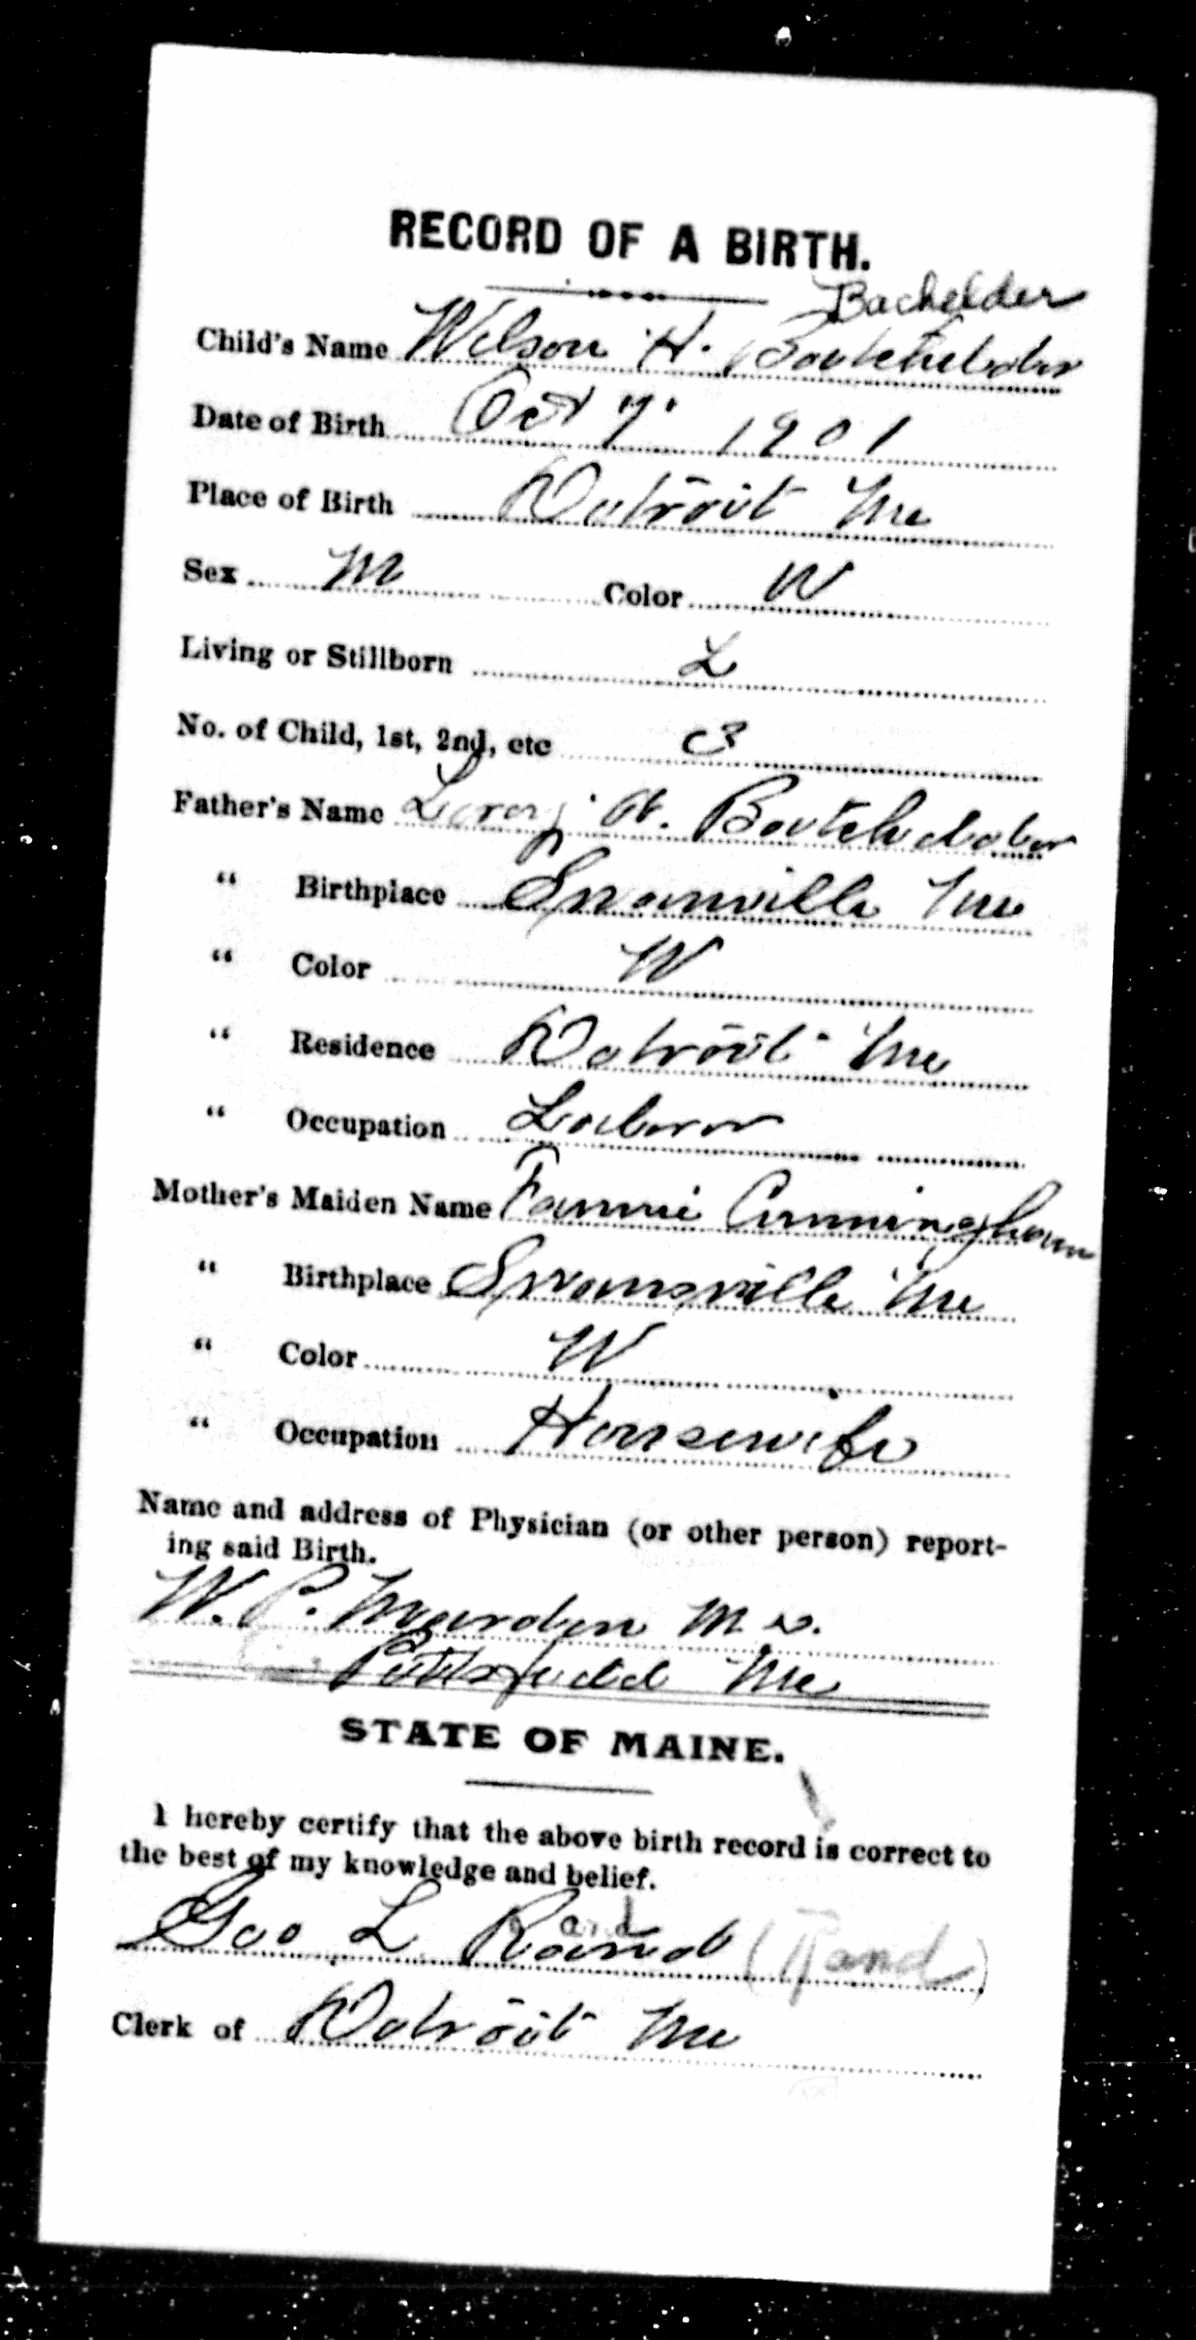 RECORD OF A BIRTH.
Bachelder
Child's Name Wilson H. Batchelder
Date of Birth Oct 7. 1901
Place of Birth Detroit Me
Sex M Color W
Living or Stillborn L
No. of Child, 1st, 2nd, etc 3
Father's Name Leroy H. Batchelder
" Birthplace Swanville Me
" Color W
" Residence Detroit Me
" Occupation Laborer
Mother's Maiden Name Fannie Cunningham
" Birthplace Swansville Me
" Color W
" Occupation Housewife
Name and address of Physician (or other person) report-
ing said Birth.
W. P. Marden M.D.
Pittsfield Me
STATE OF MAINE.
I hereby certify that the above birth record is correct to
the best of my knowledge and belief.
Geo L Rand (Rand)
Clerk of Detroit Me